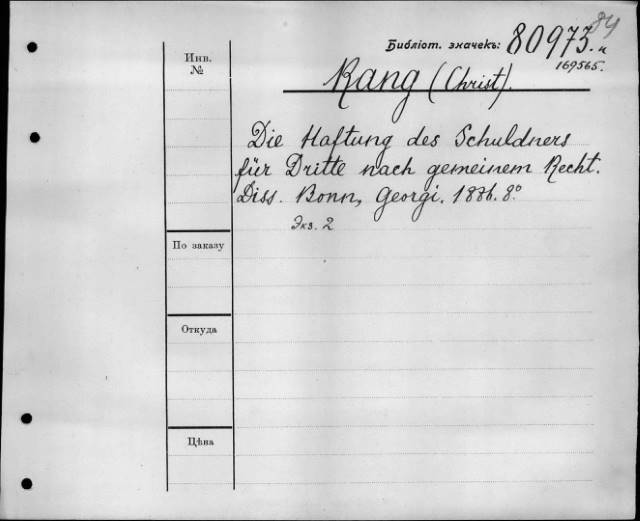 84
Библіот. значекъ: 80973. и
169565.
Инв.
№
Rang (Christ).
Die Haftung des Schuldners
für Dritte nach gemeinem Recht.
Diss. Bonn, Georgi. 1886. 8°
Экз. 2
По заказу
Откуда
Цѣна